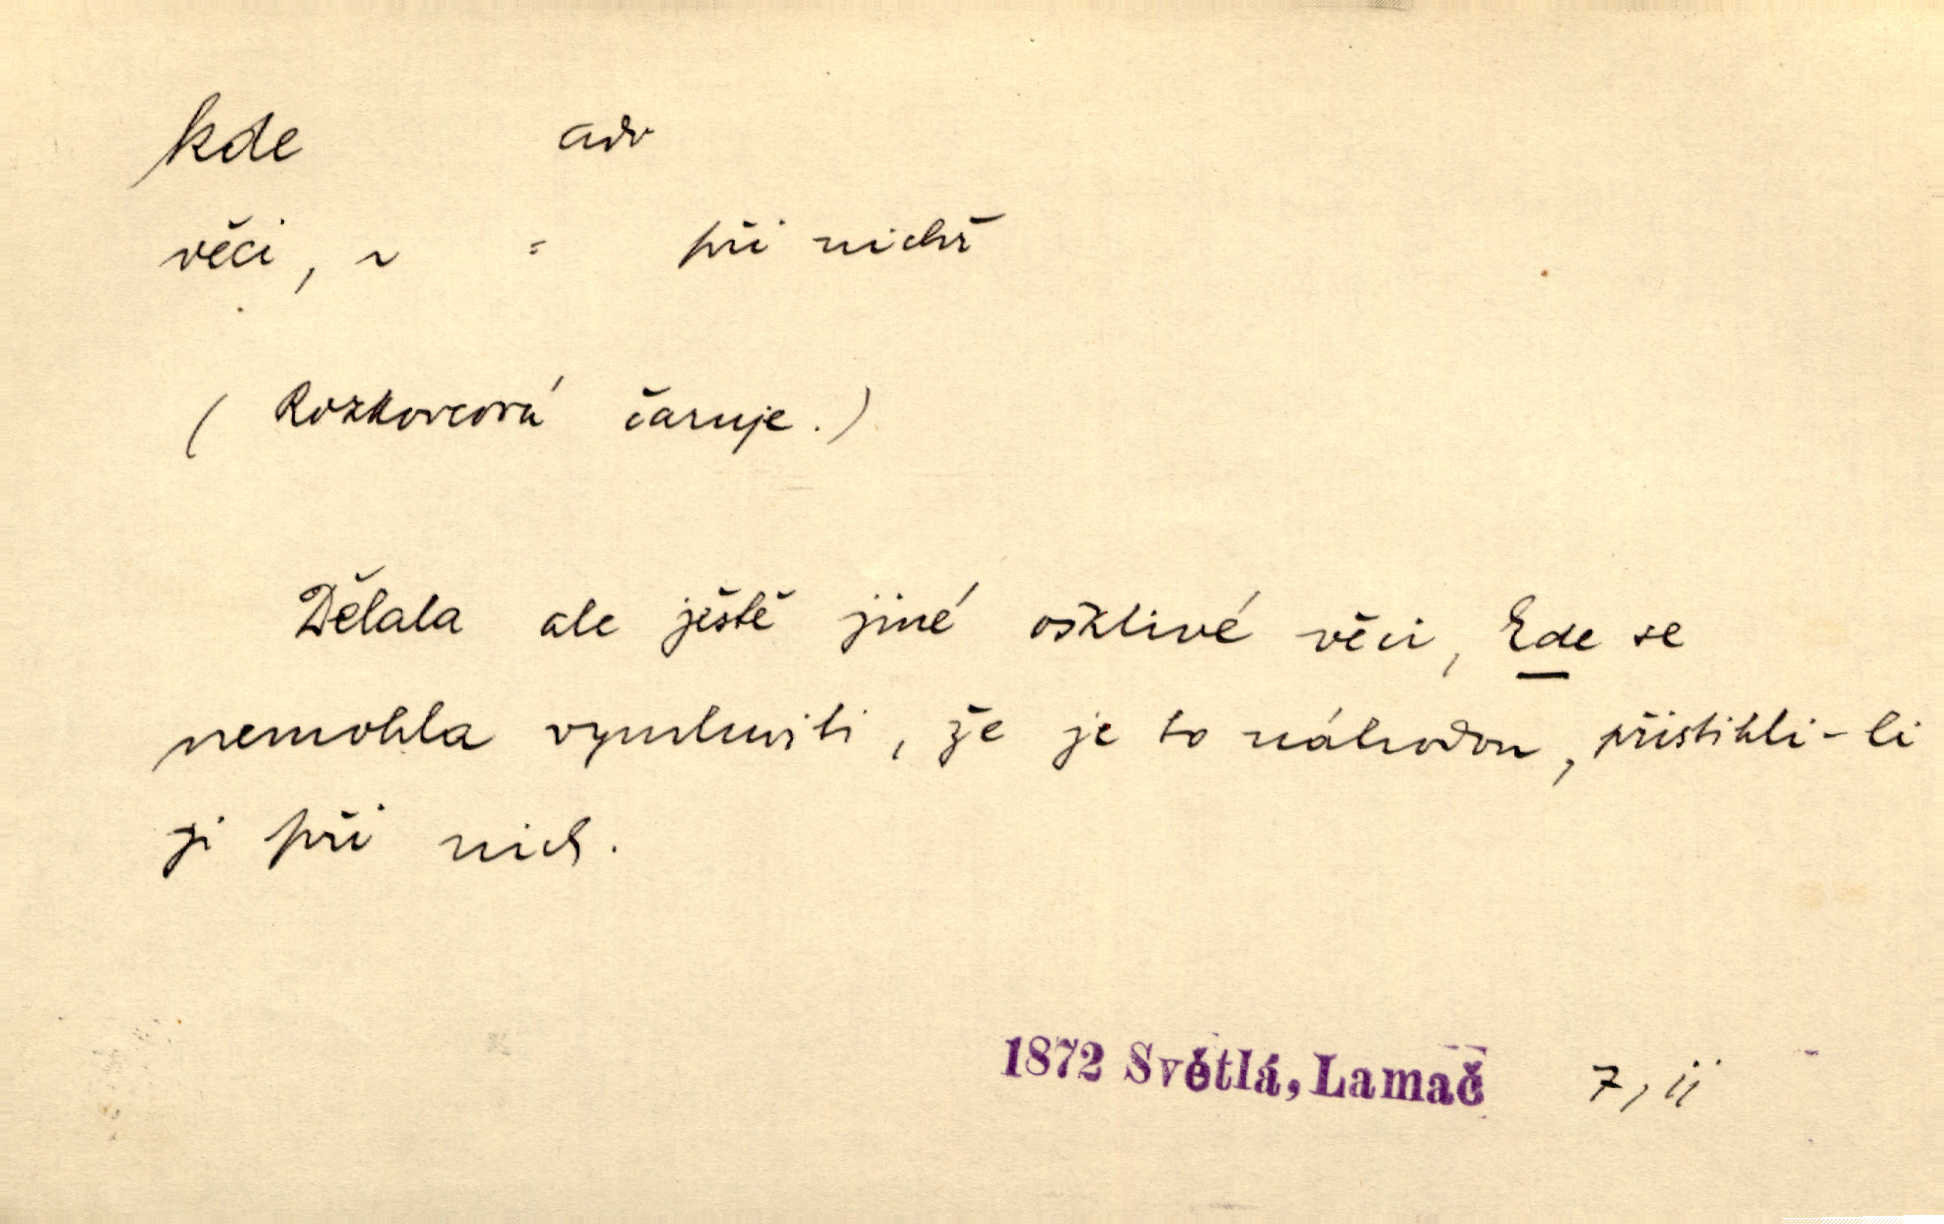 kde adv
věci, ~ = při nichž
(Rozkovcová čaruje.)
Dělala ale ještě jiné ošklivé věci, kde se
nemohla vymluviti, že je to náhodou, přistihli-li
ji při nich.
1872 Světlá, Lamač 7, ii